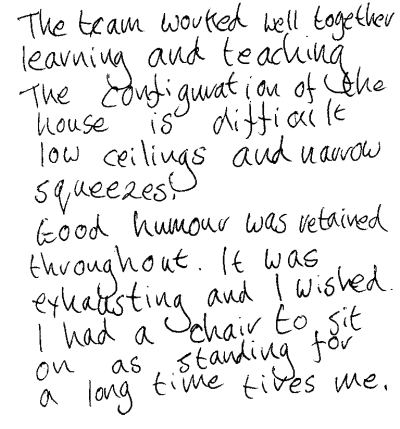 The team worked well together
learning and teaching
The configuration of the
house is difficult
low ceilings and narrow
squeezes.
Good humour was retained
throughout. It was
exhausting and I wished.
I had a chair to sit
on as standing for
a long time tires me.